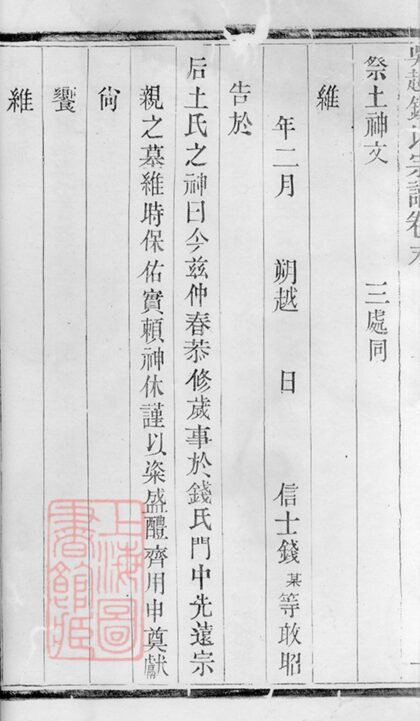 吳越錢氏宗譜卷末
祭土神文　三處同
維
年二月　朔越　日　信士錢某等敢昭
告於
后土氏之神曰今兹仲春恭修歲事於錢氏門中先遠宗
親之墓維時保佑實賴神休謹以粢盛醴齊用申奠獻
尙
饗
維
上海圖
書館藏